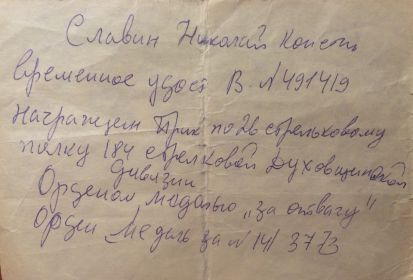 Славин Николай Конст.
временное удост В. №491419
Награжден Прик по 26 стрелковому
полку 184 стрелковой Духовщинской
дивизии
Орденом медалью „За отвагу"
Орден медаль за №141 3773